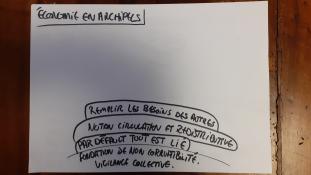 ÉCONOMIE EN ARCHIPELS
REMPLIR LES BESOINS DES AUTRES
NOTION CIRCULATION ET REDISTRIBUTIVE
PAR DÉFAUT TOUT EST LIÉ
FONDATION DE NON CORRUPTIBILITÉ.
VIGILANCE COLLECTIVE.